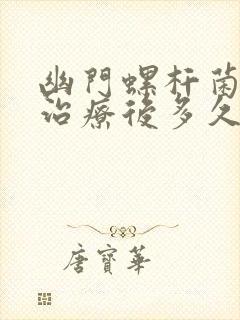 幽門螺杆菌
治療後多久
唐寶華